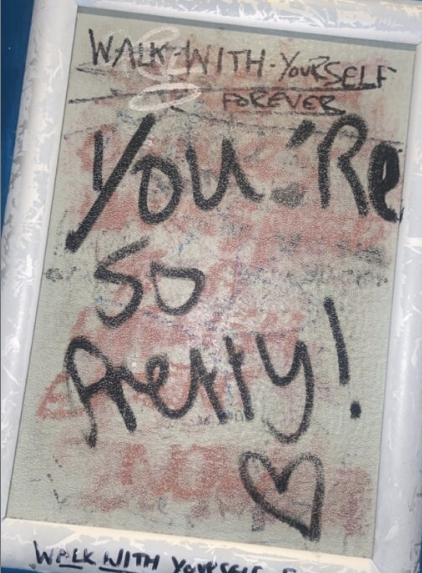 WALK-WITH-YOURSELF
FOREVER
You're
so
Pretty!
WALK WITH YOURSELF